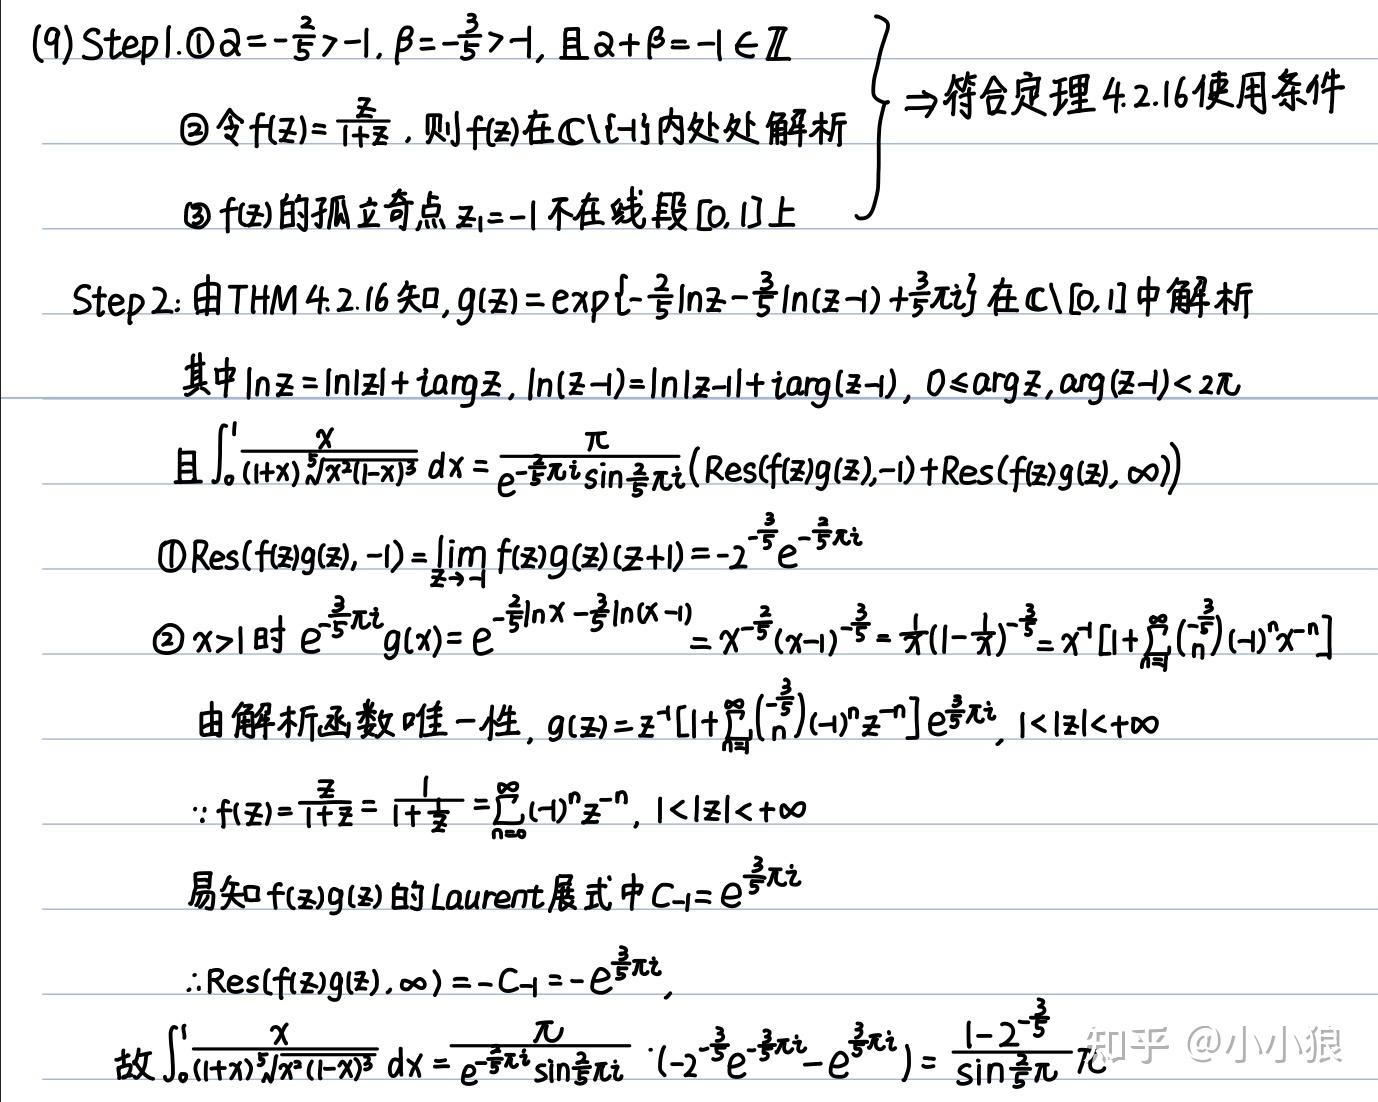 (9) Step1. ① α = -2/5 > -1, β = -3/5 > -1, 且 α + β = -1 ∈ ℤ
② 令 f(z) = z/(1+z), 则 f(z) 在 ℂ\{-1} 内处处解析
⇒ 符合定理 4.2.16 使用条件
③ f(z) 的孤立奇点 z₁ = -1 不在线段 [0,1] 上
Step2: 由 THM 4.2.16 知, g(z) = exp{-2/5 ln z - 3/5 ln(z-1) + 3/5 πi} 在 ℂ\[0,1] 中解析
其中 ln z = ln|z| + i arg z, ln(z-1) = ln|z-1| + i arg(z-1), 0 ≤ arg z, arg(z-1) < 2π
且 ∫₀¹ x/((1+x) ⁵√(x²(1-x)³)) dx = π/(e^{-2/5 πi} sin 2/5 πi) (Res(f(z)g(z), -1) + Res(f(z)g(z), ∞))
① Res(f(z)g(z), -1) = lim_{z→-1} f(z)g(z)(z+1) = -2^{-3/5} e^{-2/5 πi}
② x>1 时 e^{-3/5 πi} g(x) = e^{-2/5 ln x - 3/5 ln(x-1)} = x^{-2/5} (x-1)^{-3/5} = 1/x (1-1/x)^{-3/5} = x^{-1} [1 + ∑_{n=1}^{∞} (-3/5 n) (-1)^n x^{-n}]
由解析函数唯一性, g(z) = z^{-1} [1 + ∑_{n=1}^{∞} (-3/5 n) (-1)^n z^{-n}] e^{3/5 πi}, 1 < |z| < +∞
∵ f(z) = z/(1+z) = 1/(1+1/z) = ∑_{n=0}^{∞} (-1)^n z^{-n}, 1 < |z| < +∞
易知 f(z)g(z) 的 Laurent 展式中 C₋₁ = e^{3/5 πi}
∴ Res(f(z)g(z), ∞) = -C₋₁ = -e^{3/5 πi},
故 ∫₀¹ x/((1+x) ⁵√(x²(1-x)³)) dx = π/(e^{-2/5 πi} sin 2/5 πi) · (-2^{-3/5} e^{-3/5 πi} - e^{3/5 πi}) = (1-2^{-3/5})/(sin 2/5 π) π
知乎 @小小狼